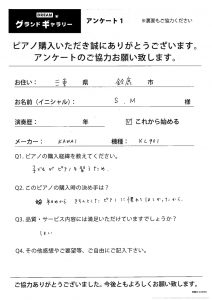 グランドギャラリー アンケート1 ※裏面もご協力ください
ピアノ購入いただき誠にありがとうございます。
アンケートのご協力お願い致します。
お住い： 三重 県 鈴鹿 市
お名前（イニシャル）： S.M 様
演奏歴： 年 ☑ これから始める
メーカー： KAWAI 機種： KL901
Q1. ピアノの購入経緯を教えてください。
子どもがピアノを習うため
Q2. このピアノの購入時の決め手は？
Q3. 品質・サービス内容には満足いただけていますでしょうか？
はい
Q4. その他感想やご要望等、ご自由にご記入下さい。
ご協力ありがとうございました。今後ともよろしくお願い致します。